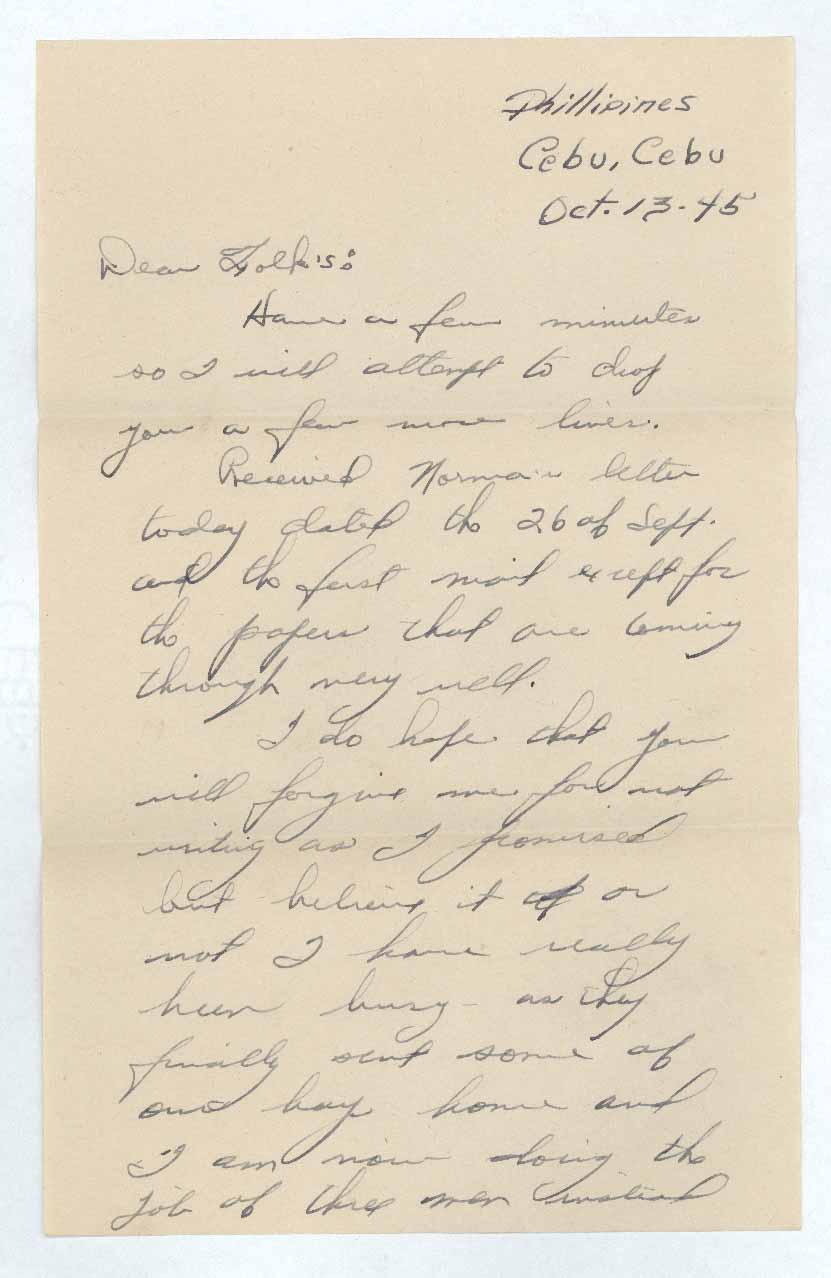 Phillipines
Cebu, Cebu
Oct. 13-45
Dear Folk's:
Have a few minutes
so I will attempt to drop
you a few more lines.
Received Norma's letter
today dated the 26 of Sept.
and the first mail except for
the papers that are coming
through very well.
I do hope that you
will forgive me for not
writing as I promised
but believe it or
not I have really
been busy - as they
finally sent some of
our boys home and
I am now doing the
job of three men instead